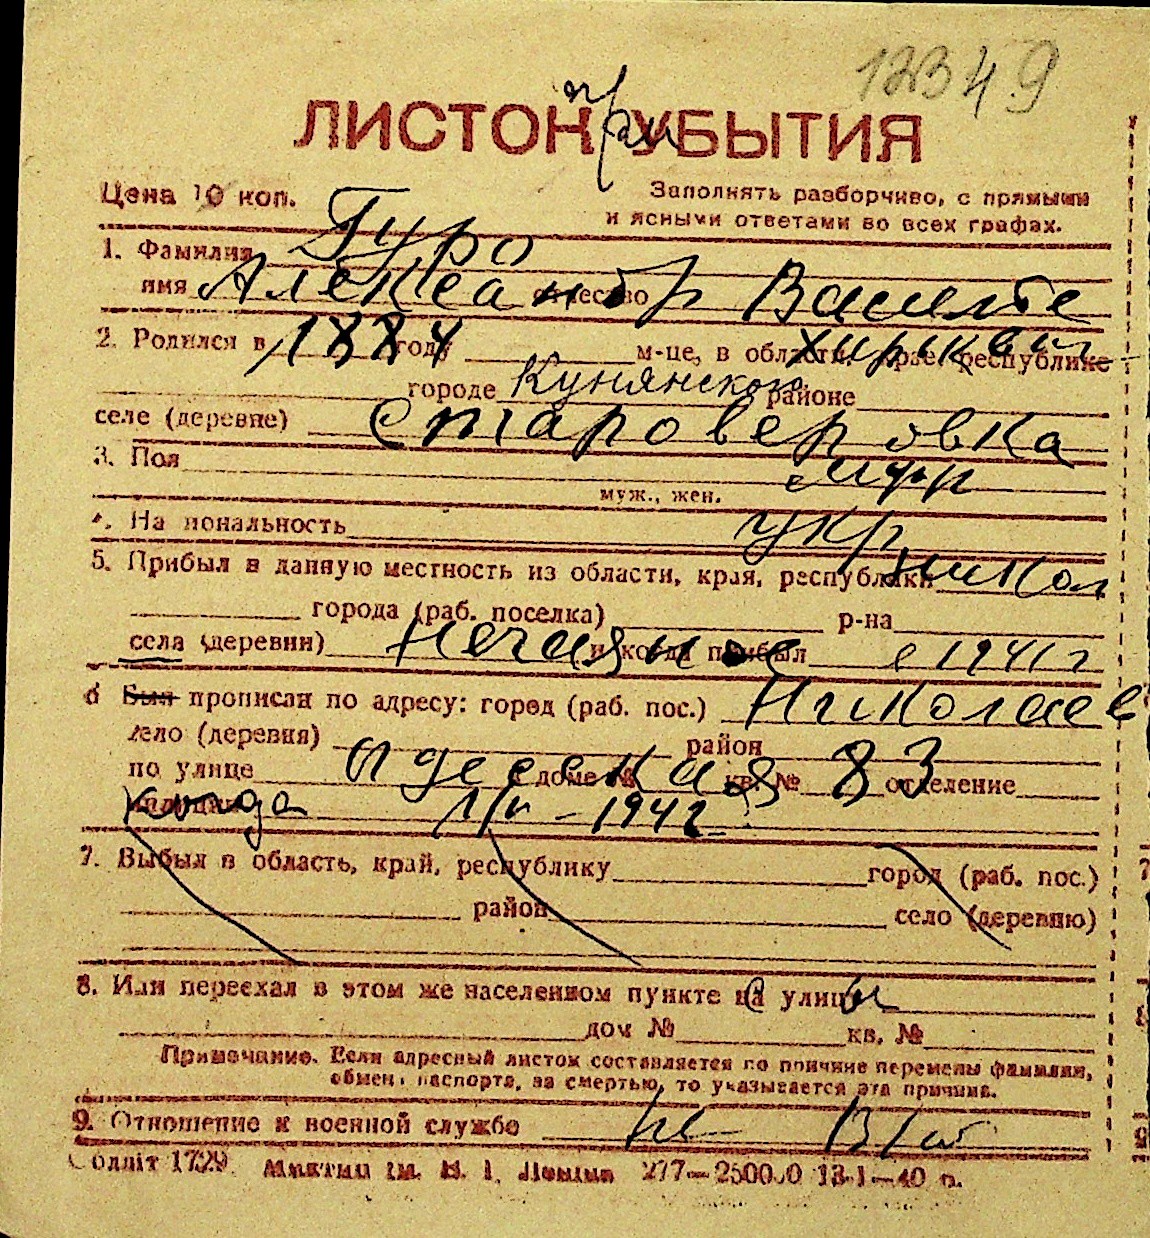 12349
ЛИСТОК при УБЫТИЯ
Цена 10 коп.
Заполнять разборчиво, с прямыми
и ясными ответами во всех графах.
1. Фамилия Гуро
имя Александр отчество Василье
2. Родился в 1884 году м-це, в области, крае, республике
городе Кунянском районе
селе (деревне) Староверовка
3. Пол муж
муж., жен.
4. Национальность укр
5. Прибыл в данную местность из области, края, республики Никол
города (раб. поселка) р-на
села (деревни) Нечаяное и когда прибыл с 1941 г
6 Был прописан по адресу: город (раб. пос.) Николаев
село (деревня) район
по улице Одесская доме № кв. № 83 отделение
милиции когда 1942
7. Выбыл в область, край, республику город (раб. пос.)
район село (деревню)
8. Или переехал в этом же населенном пункте с улицы
дом № кв. №
Примечание. Если адресный листок составляется по причине перемены фамилии,
обмена паспорта, за смертью, то указывается эта причина.
9. Отношение к военной службе не в/об
Обліт 1729. Миктип ім. В. І. Леніна 277—250000 13-1—40 р.